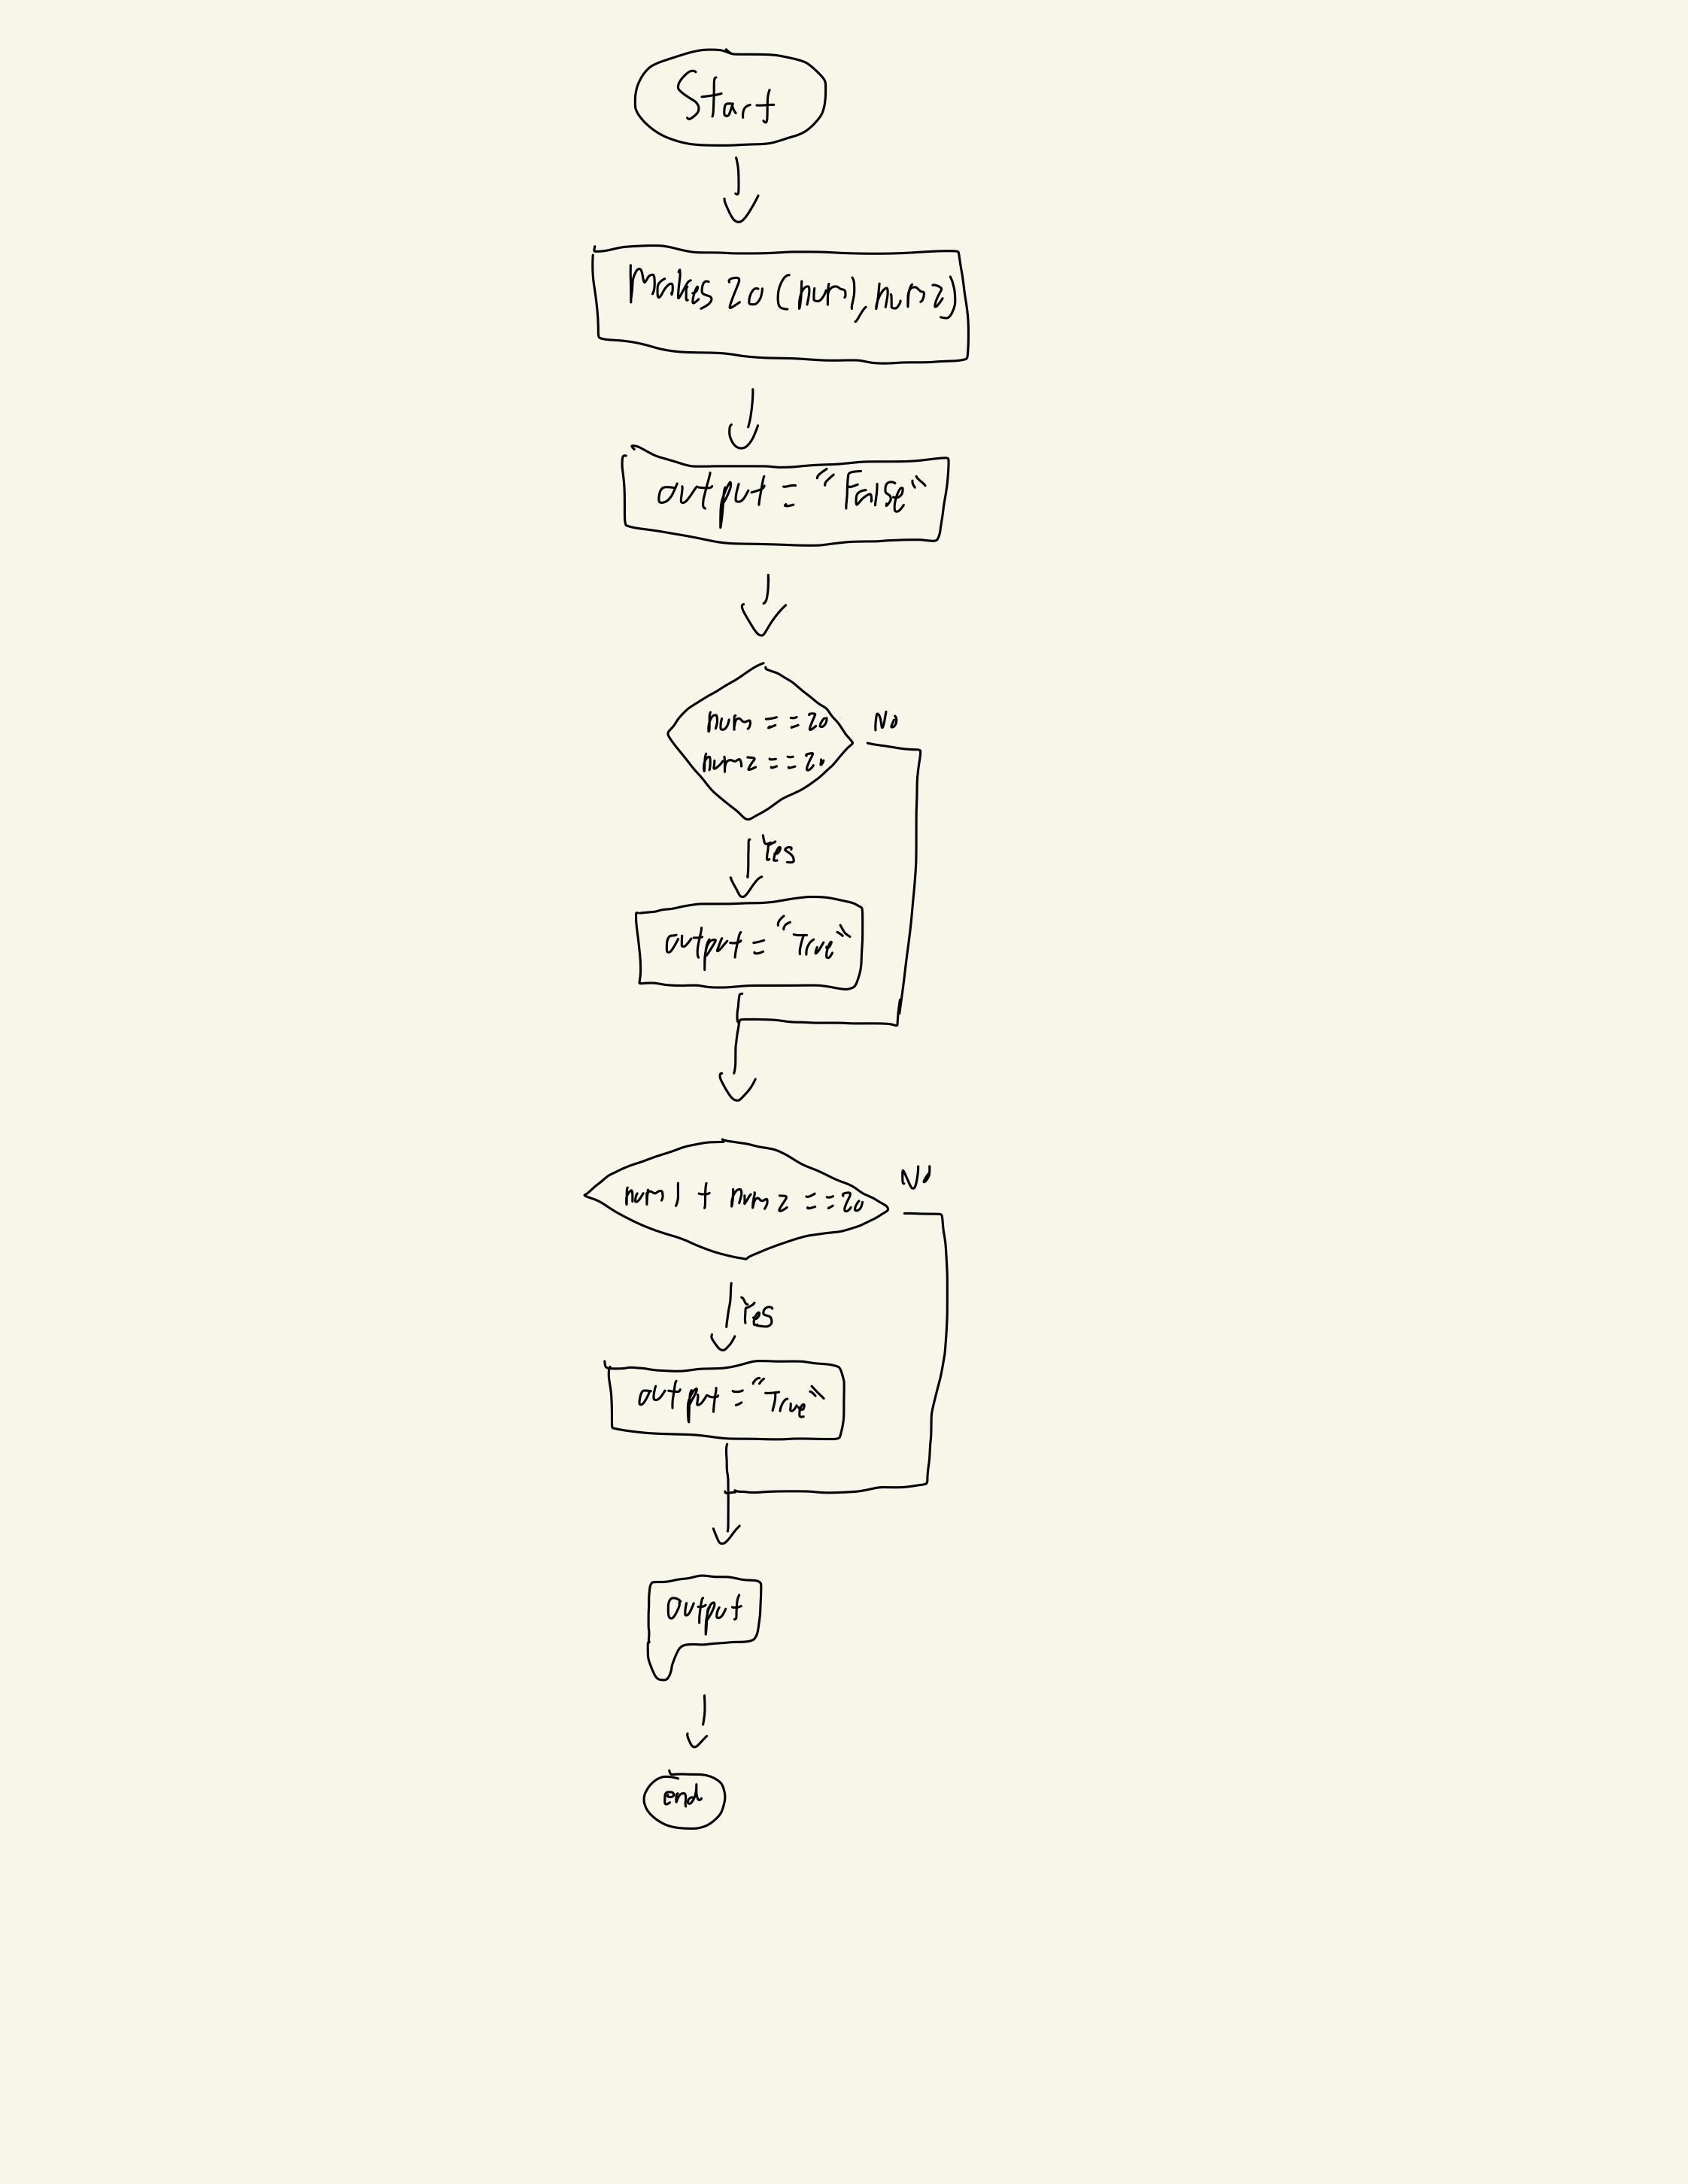 Start
Makes 20 (num1, num2)
output = "False"
num == 20
num2 == 20
No
Yes
output = "True"
num1 + num2 == 20
No
Yes
output = "True"
output
end